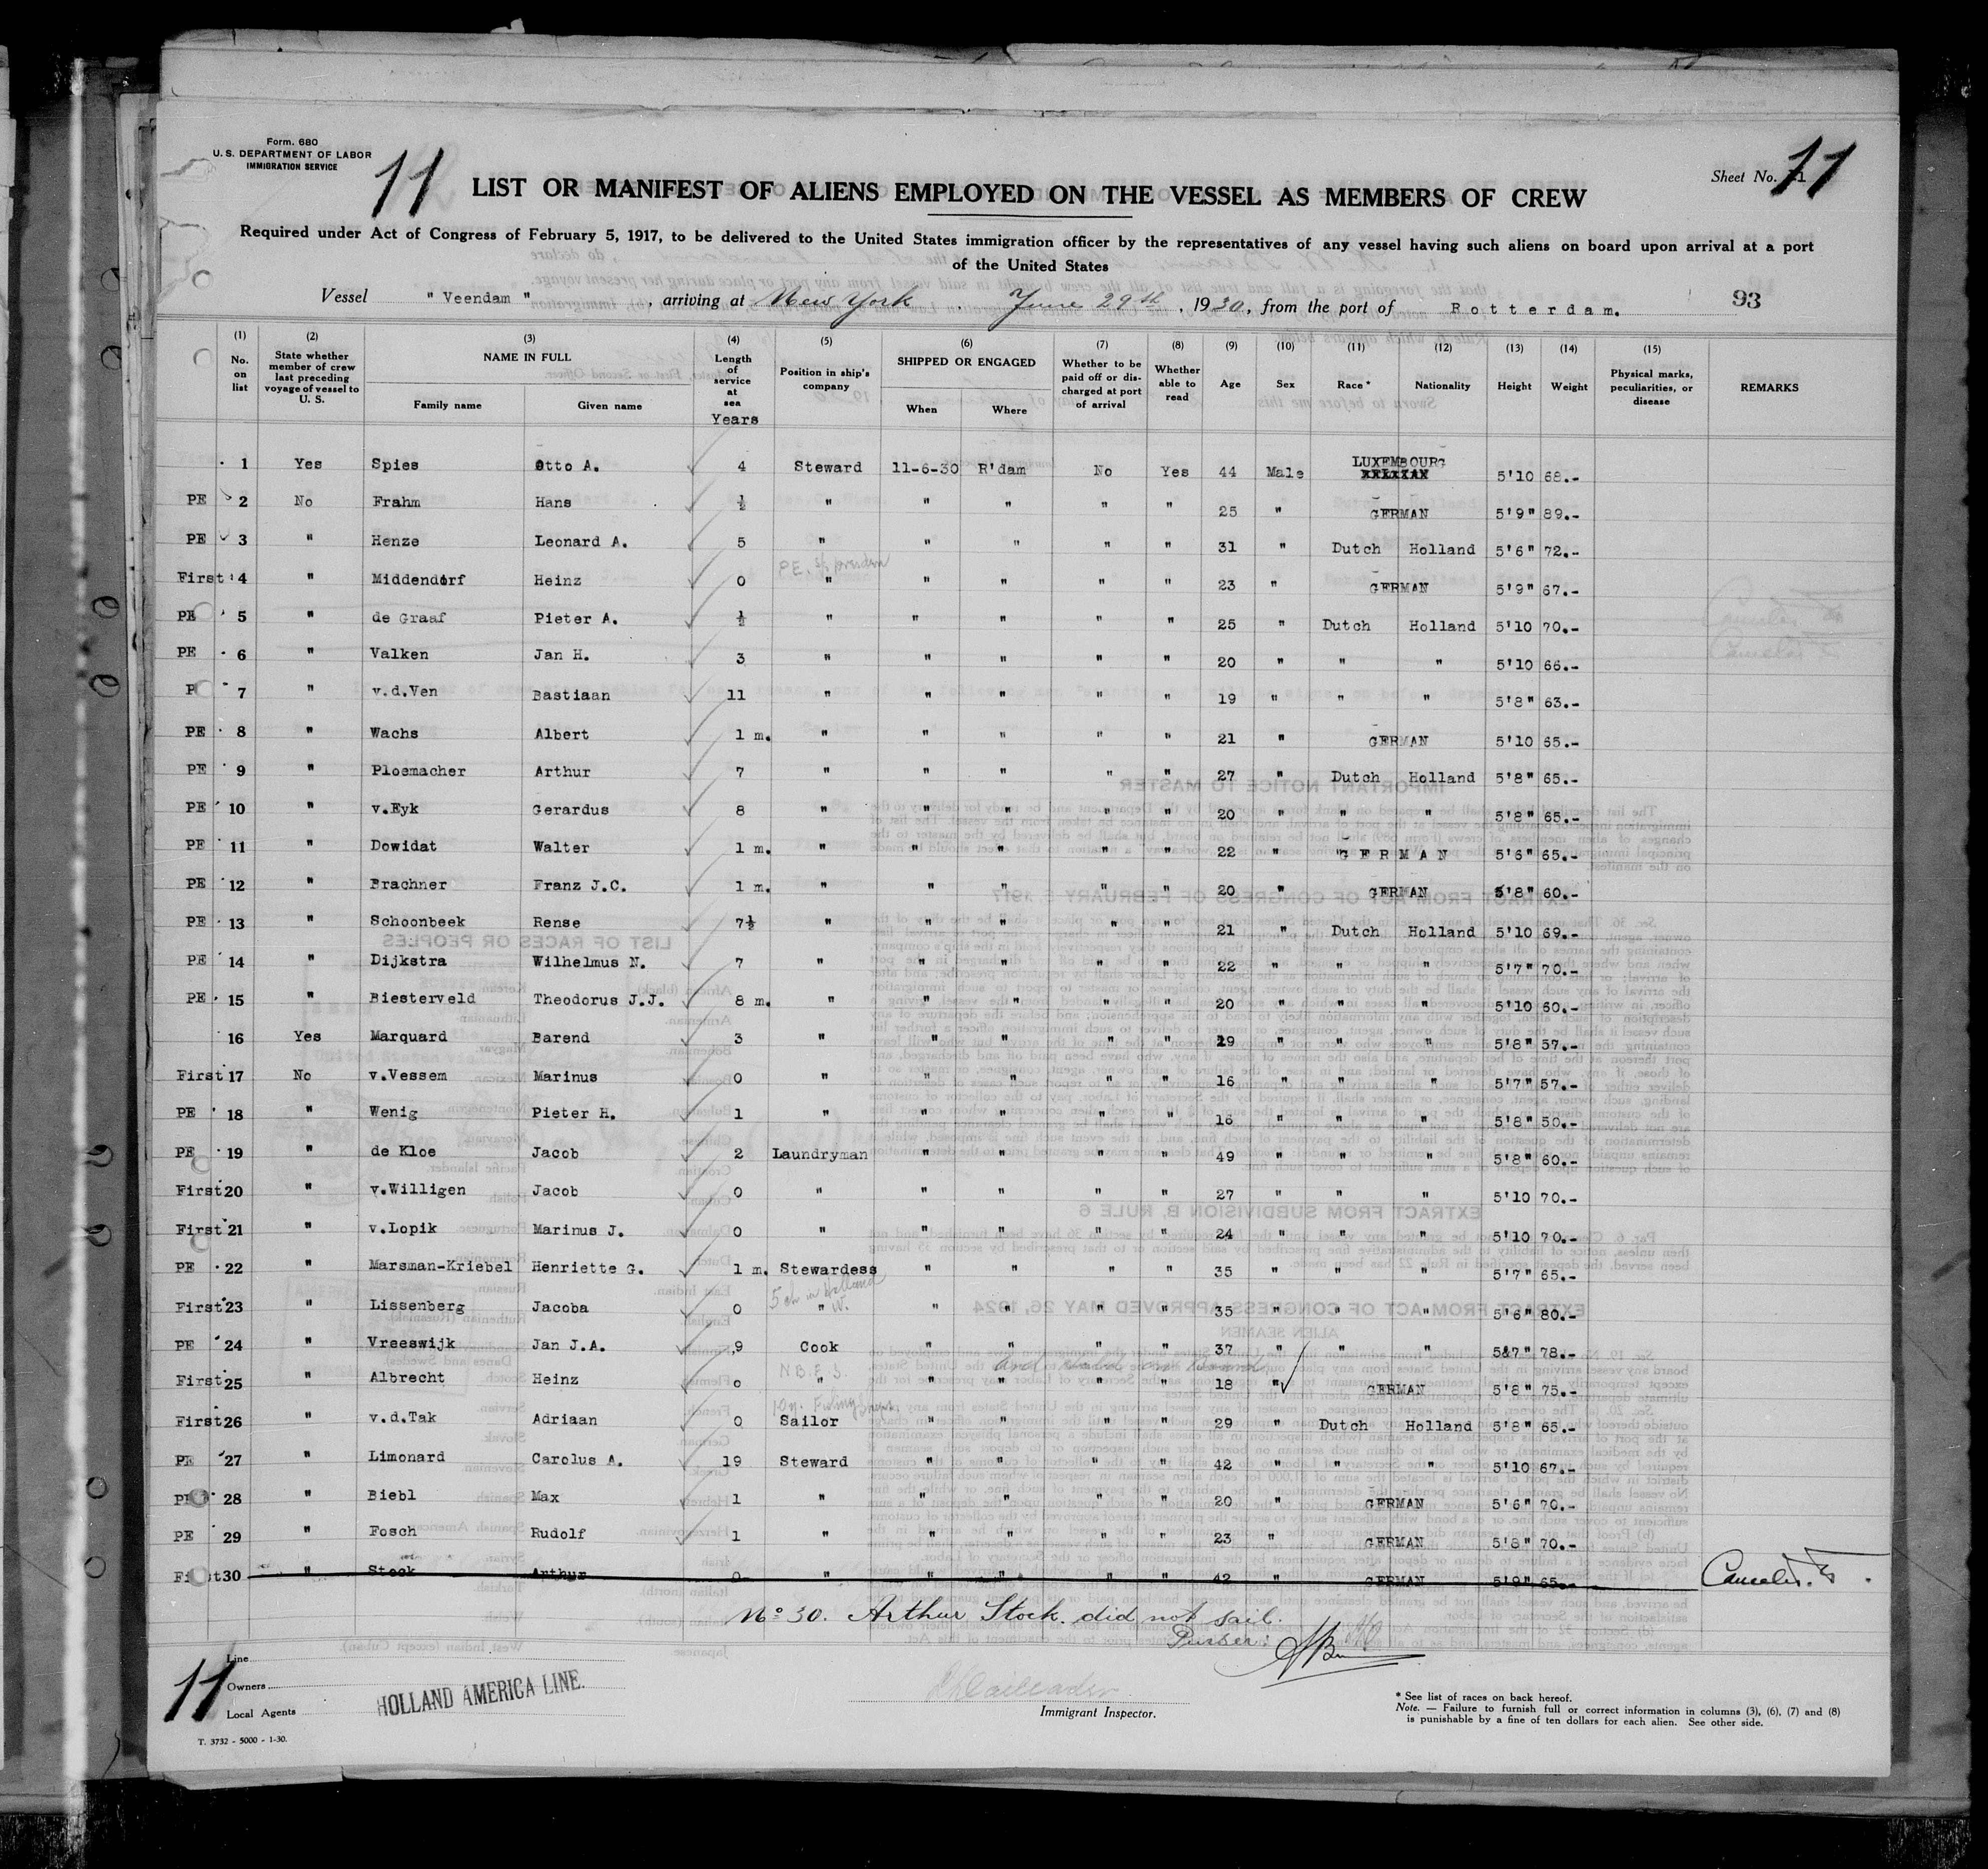 Form. 680
U. S. DEPARTMENT OF LABOR
IMMIGRATION SERVICE
11
Sheet No. 11
LIST OR MANIFEST OF ALIENS EMPLOYED ON THE VESSEL AS MEMBERS OF CREW
Required under Act of Congress of February 5, 1917, to be delivered to the United States immigration officer by the representatives of any vessel having such aliens on board upon arrival at a port
of the United States
Vessel "Veendam", arriving at New York. June 29th, 1930, from the port of Rotterdam.
93
(1) No. on list (2) State whether member of crew last preceding voyage of vessel to U. S. (3) NAME IN FULL Family name Given name (4) Length of service at sea Years (5) Position in ship's company (6) SHIPPED OR ENGAGED When Where (7) Whether to be paid off or discharged at port of arrival (8) Whether able to read (9) Age (10) Sex (11) Race * (12) Nationality (13) Height (14) Weight (15) Physical marks, peculiarities, or disease REMARKS
1 Yes Spies Otto A. 4 Steward 11-6-30 R'dam No Yes 44 Male LUXEMBOURG 5'10 68.-
PE 2 No Frahm Hans ½ " " " " " 25 " GERMAN 5'9" 89.-
PE 3 " Henze Leonard A. 5 " " " " " 31 " Dutch Holland 5'6" 72.-
First 4 " Middendorf Heinz 0 " " " " " 23 " GERMAN 5'9" 67.-
PE 5 " de Graaf Pieter A. ½ " " " " " 25 " Dutch Holland 5'10 70.-
PE 6 " Valken Jan H. 3 " " " " " 20 " " " 5'10 66.-
P 7 " v.d.Ven Bastiaan 11 " " " " " 19 " " " 5'8" 63.-
PE 8 " Wachs Albert 1 m. " " " " " 21 " GERMAN 5'10 65.-
PE 9 " Ploemacher Arthur 7 " " " " " 27 " Dutch Holland 5'8" 65.-
PE 10 " v.Eyk Gerardus 8 " " " " " 20 " " " 5'8" 65.-
PE 11 " Dowidat Walter 1 m. " " " " " 22 " GERMAN 5'6" 65.-
PE 12 " Brachner Franz J.C. 1 m. " " " " " 20 " GERMAN 5'8" 60.-
PE 13 " Schoonbeek Rense 7½ " " " " " 21 " Dutch Holland 5'10 69.-
PE 14 " Dijkstra Wilhelmus N. 7 " " " " " 22 " " " 5'7" 70.-
PE 15 " Biesterveld Theodorus J.J. 8 m. " " " " " 20 " " " 5'10 60.-
16 Yes Marquard Barend 3 " " " " " 19 " " " 5'8" 57.-
First 17 No v.Vessem Marinus 0 " " " " " 16 " " " 5'7" 57.-
PE 18 " Wenig Pieter H. 1 " " " " " 16 " " " 5'8" 50.-
PE 19 " de Kloe Jacob 2 Laundryman " " " " 49 " " " 5'8" 60.-
First 20 " v.Willigen Jacob 0 " " " " " 27 " " " 5'10 70.-
First 21 " v.Lopik Marinus J. 0 " " " " " 24 " " " 5'10 70.-
PE 22 " Marsman-Kriebel Henriette G. 1 m. Stewardess " " " " 35 " " " 5'7" 65.-
First 23 " Lissenberg Jacoba 0 " " " " " 35 " " " 5'6" 80.-
PE 24 " Vreeswijk Jan J.A. 9 Cook " " " " 37 " " " 5'7" 78.-
First 25 " Albrecht Heinz 0 " " " " " 18 " GERMAN 5'8" 75.-
First 26 " v.d.Tak Adriaan 0 Sailor " " " " 29 " Dutch Holland 5'8" 65.-
PE 27 " Limonard Carolus A. 19 Steward " " " " 42 " " " 5'10 67.-
PE 28 " Biebl Max 1 " " " " " 20 " GERMAN 5'6" 70.-
PE 29 " Fosch Rudolf 1 " " " " " 23 " GERMAN 5'8" 70.-
First 30 " Stock Arthur 0 " " " " " 42 " GERMAN 5'9" 65.-
No 30. Arthur Stock did not sail.
Purser:
11
Line
Owners
Local Agents
HOLLAND AMERICA LINE.
Immigrant Inspector.
* See list of races on back hereof.
Note. — Failure to furnish full or correct information in columns (3), (6), (7) and (8)
is punishable by a fine of ten dollars for each alien. See other side.
T. 3732 - 5000 - 1-30.